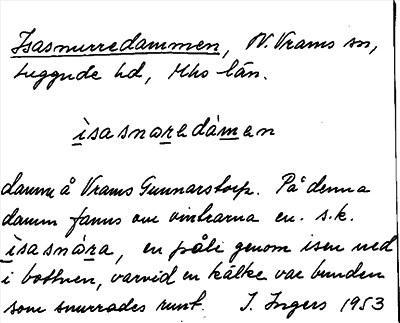 Isasnurredammen, N. Vrams sn,
Luggude hd, Mhs län.
ìsasnaredàmen
damm å Vrams Gunnarstorp. På denna
damm fanns om vintrarna en s.k.
ìsasnàra, en påle genom isen ned
i bottnen, varvid en kälke var bunden
som snurrades runt. I. Ingers 1953